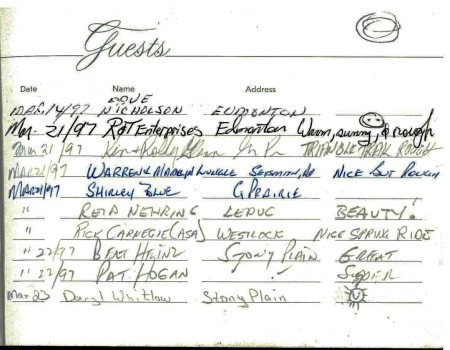 Guests
Date Name Address
MAR 14/97 DAVE NICHOLSON EDMONTON
Mar. 21/97 R&T Enterprises Edmonton Warm, sunny, & rough
Mar 21/97 Ken & Kelly
MAR 21/97 WARREN & NICE BUT
MAR 21/97 SHIRLEY G PRAIRIE
" REID NEHRING LEDUC BEAUTY!
" RICK CARNEGIE (CASA) WESTLOCK NICE SPRING RIDE
" 22/97 BERT HEINZ STONY PLAIN GREAT
" 22/97 PAT HOGAN " SUPER
Mar 23 Daryl Whitlow Stony Plain